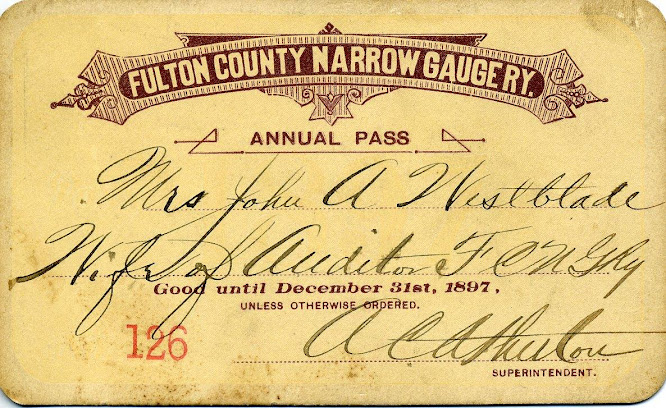 FULTON COUNTY NARROW GAUGE RY.
ANNUAL PASS
Mrs John A Westblade
Wife of Auditor F C N G Ry
Good until December 31st, 1897,
UNLESS OTHERWISE ORDERED.
126
A C Atherton
SUPERINTENDENT.